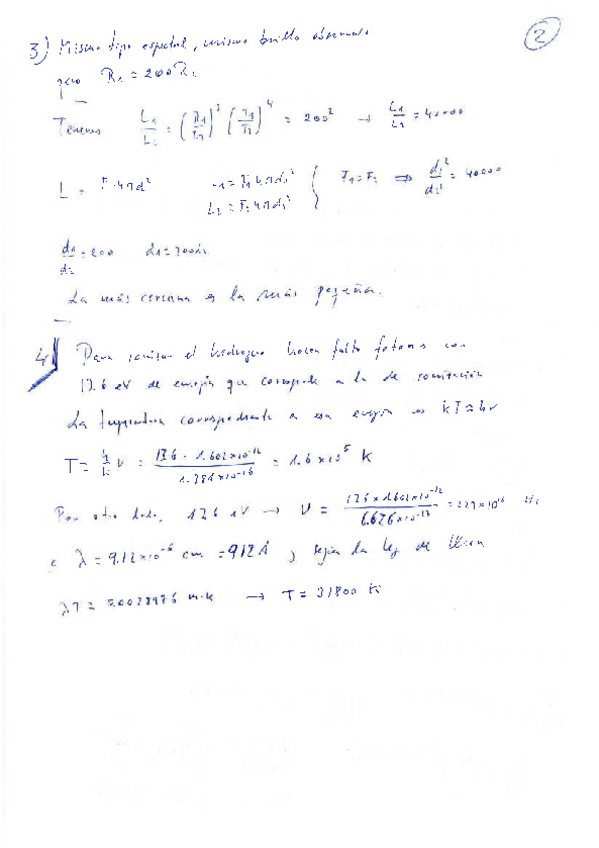 2
3) Mismo tipo espectral, mismo brillo observado
pero R₁ = 200 R₂
Tenemos L₁/L₂ = (R₁/R₂)² (T₁/T₂)⁴ = 200² → L₁/L₂ = 40000
L = F·4πd² L₁ = F₁4πd₁² L₂ = F₂4πd₂² } F₁ = F₂ ⇒ d₁²/d₂² = 40000
d₁/d₂ = 200 d₁ = 200d₂
La más cercana es la más pequeña.
4) Para ionizar el hidrógeno hacen falta fotones con
13.6 eV de energía que corresponde a la de ionización
La temperatura correspondiente a esa energía es kT ≈ hν
T = h/k ν = 13.6 · 1.602×10⁻¹² / 1.381×10⁻¹⁶ = 1.6×10⁵ K
Por otro lado, 13.6 eV → ν = 13.6×1.602×10⁻¹² / 6.626×10⁻²⁷ = 3.29×10¹⁵ Hz
λ = 9.12×10⁻⁶ cm = 912 Å y según la ley de Wien
λT = 0.0028976 m·K → T = 31800 K